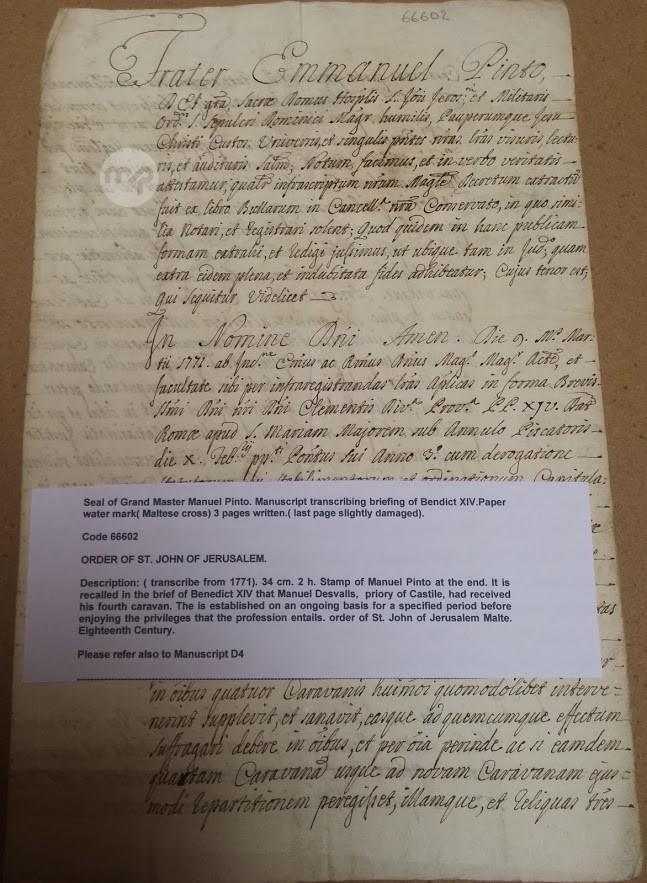 66602
Frater Emmanuel Pinto,
D. Et grã, Sacræ Domus Hosplis S. Jõis Jeros.ni et Militaris
Ord.s S. Sepulcri Dominici Mag.r humilis, Pauperumque Jesu
Christi Custos. Universis, et singulis pñtes nras. Lras visuris, lectu-
ris, et audituris Salm; Notum facimus, et in verbo veritatis
attestamur, infrascriptum nrum. Decretum
fuit ex libro Bullarum in Cancell.a nrã Conservato, in quo simi-
lia Notari, et Registrari solent; Quod quidem in hanc publicam
formam extrahi, et redigi jussimus, ut ubique tam in Jud.o, quam
extra eidem plena, et indubitata fides adhibeatur; Cujus tenor est,
qui sequitur Videlicet
In Nomine Dñi Amen. Die 9. M.s Mar-
tii 1771. ab Inc.ne Emus ac Rmus Dnus Mag.r Mag.r et
facultate sibi per infraregistrandas Lras Aplicas in forma Brevis
Dñi Clementis Div.a Prov.a P.P. XIV. Dat
Romæ apud S. Mariam Majorem sub Annulo Piscatoris
die X. Pontus sui Anno 3.o cum derogatione
et ordinationum Capitula-
mp
Seal of Grand Master Manuel Pinto. Manuscript transcribing briefing of Bendict XIV.Paper
water mark( Maltese cross) 3 pages written.( last page slightly damaged).
Code 66602
ORDER OF ST. JOHN OF JERUSALEM.
Description: ( transcribe from 1771). 34 cm. 2 h. Stamp of Manuel Pinto at the end. It is
recalled in the brief of Benedict XIV that Manuel Desvalls, priory of Castile, had received
his fourth caravan. The is established on an ongoing basis for a specified period before
enjoying the privileges that the profession entails. order of St. John of Jerusalem Malte.
Eighteenth Century.
Please refer also to Manuscript D4
in õibus quatuor Caravanis huimõi quomodolibet interve-
nerint supplevit, et sanavit, easque ad quemcumque effectum
suffragari debere in õibus, et per õia perinde ac si eamdem
quartam Caravanã usque ad novam Caravanam ejus-
modi repartitionem peregisset, illamque, et reliquas tres